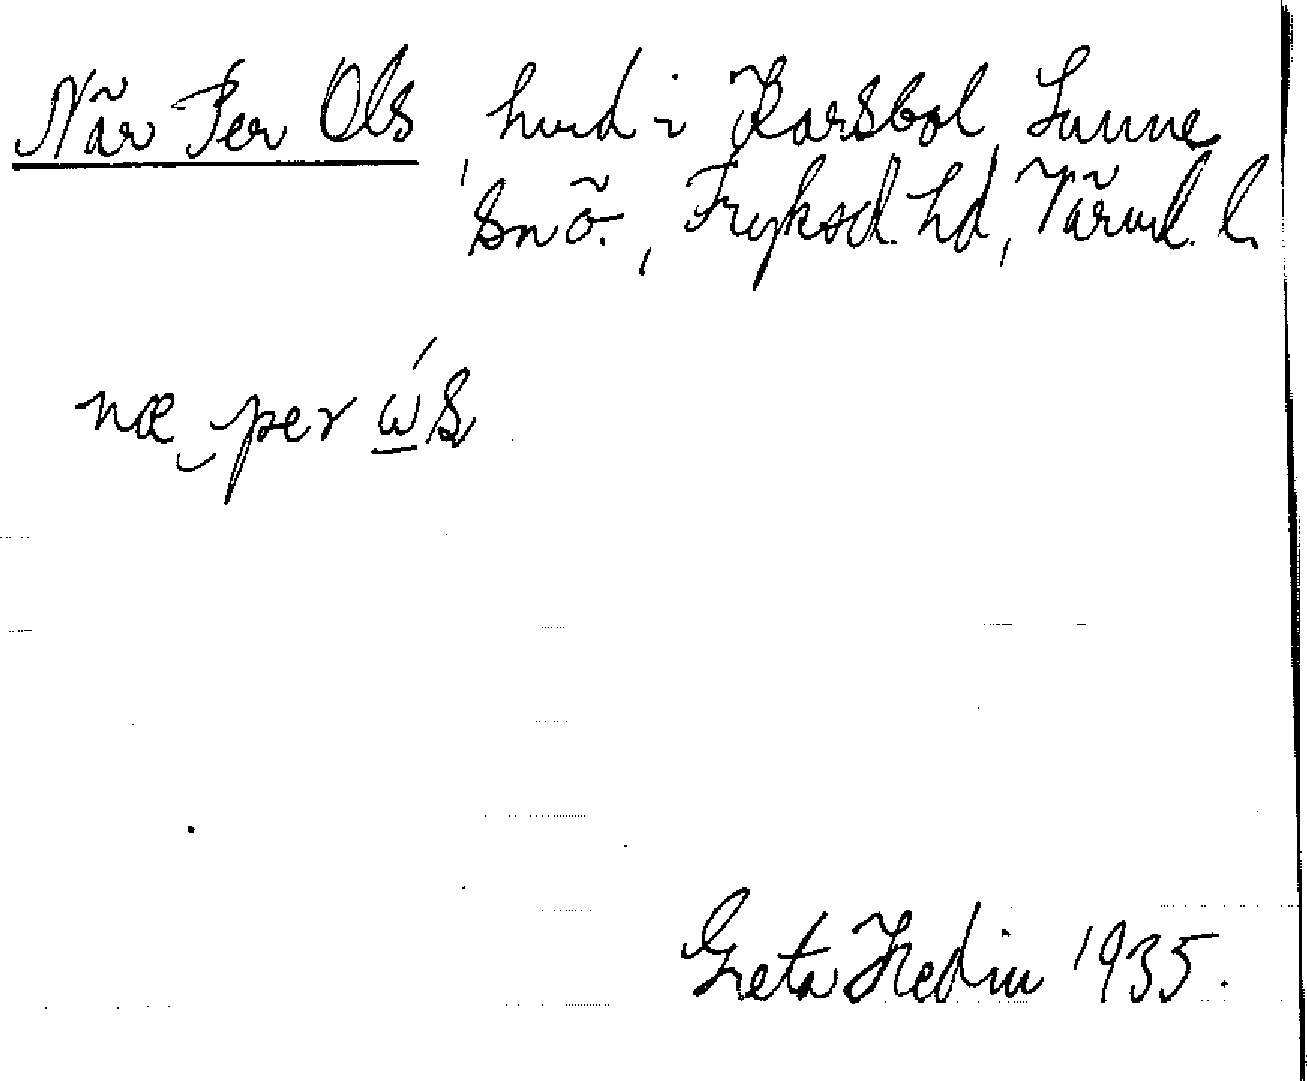 När Per Ols, hmd i Karsbol, Sunne
snö., Fryksd. hd, Värml. l.
næ‿per ώs
Greta Hedin 1935.